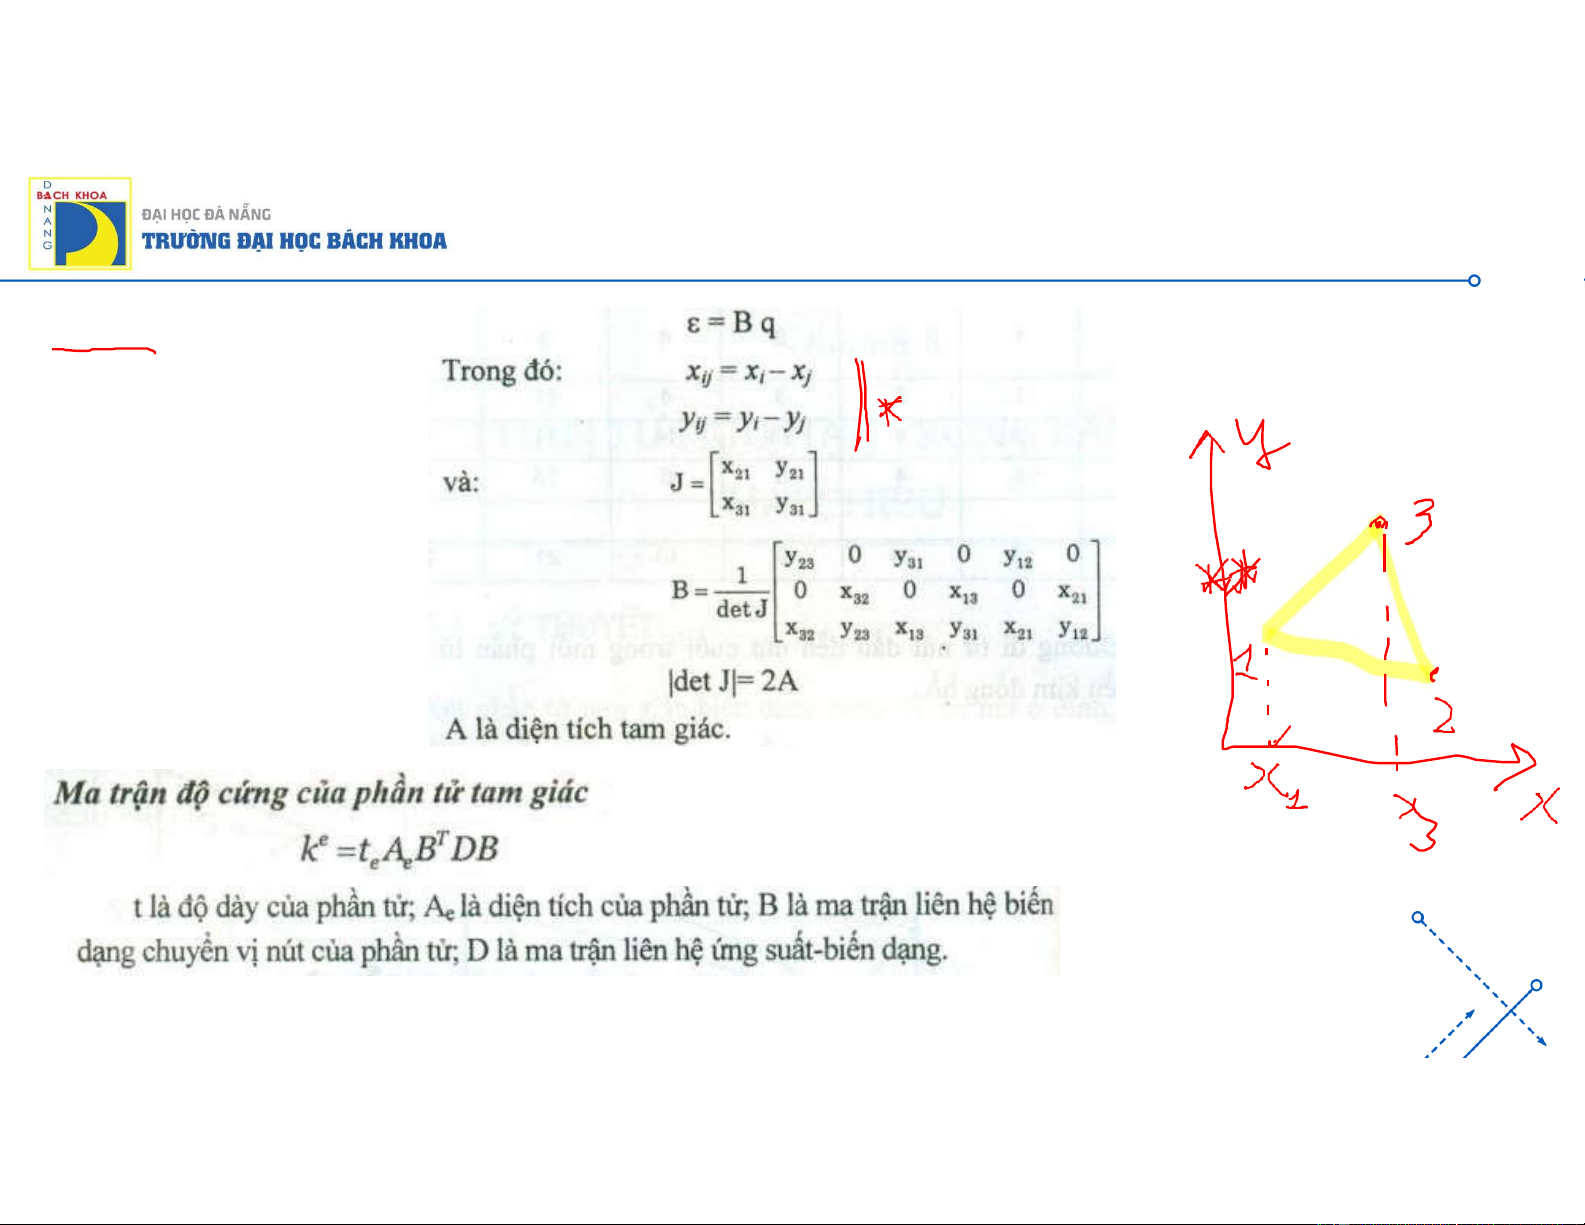 ĐÀ NANG
BACH KHOA
ĐẠI HỌC ĐÀ NẴNG
TRƯỜNG ĐẠI HỌC BÁCH KHOA
ε = B q
Trong đó: x_ij = x_i – x_j
y_ij = y_i – y_j
*
và: J = [x₂₁ y₂₁
x₃₁ y₃₁]
B = 1/det J [y₂₃ 0 y₃₁ 0 y₁₂ 0
0 x₃₂ 0 x₁₃ 0 x₂₁
x₃₂ y₂₃ x₁₃ y₃₁ x₂₁ y₁₂]
|det J|= 2A
A là diện tích tam giác.
Ma trận độ cứng của phần tử tam giác
kᵉ =tₑAₑBᵀDB
t là độ dày của phần tử; Aₑ là diện tích của phần tử; B là ma trận liên hệ biến
dạng chuyển vị nút của phần tử; D là ma trận liên hệ ứng suất-biến dạng.
y
3
**
1
2
x₁
x₃
x